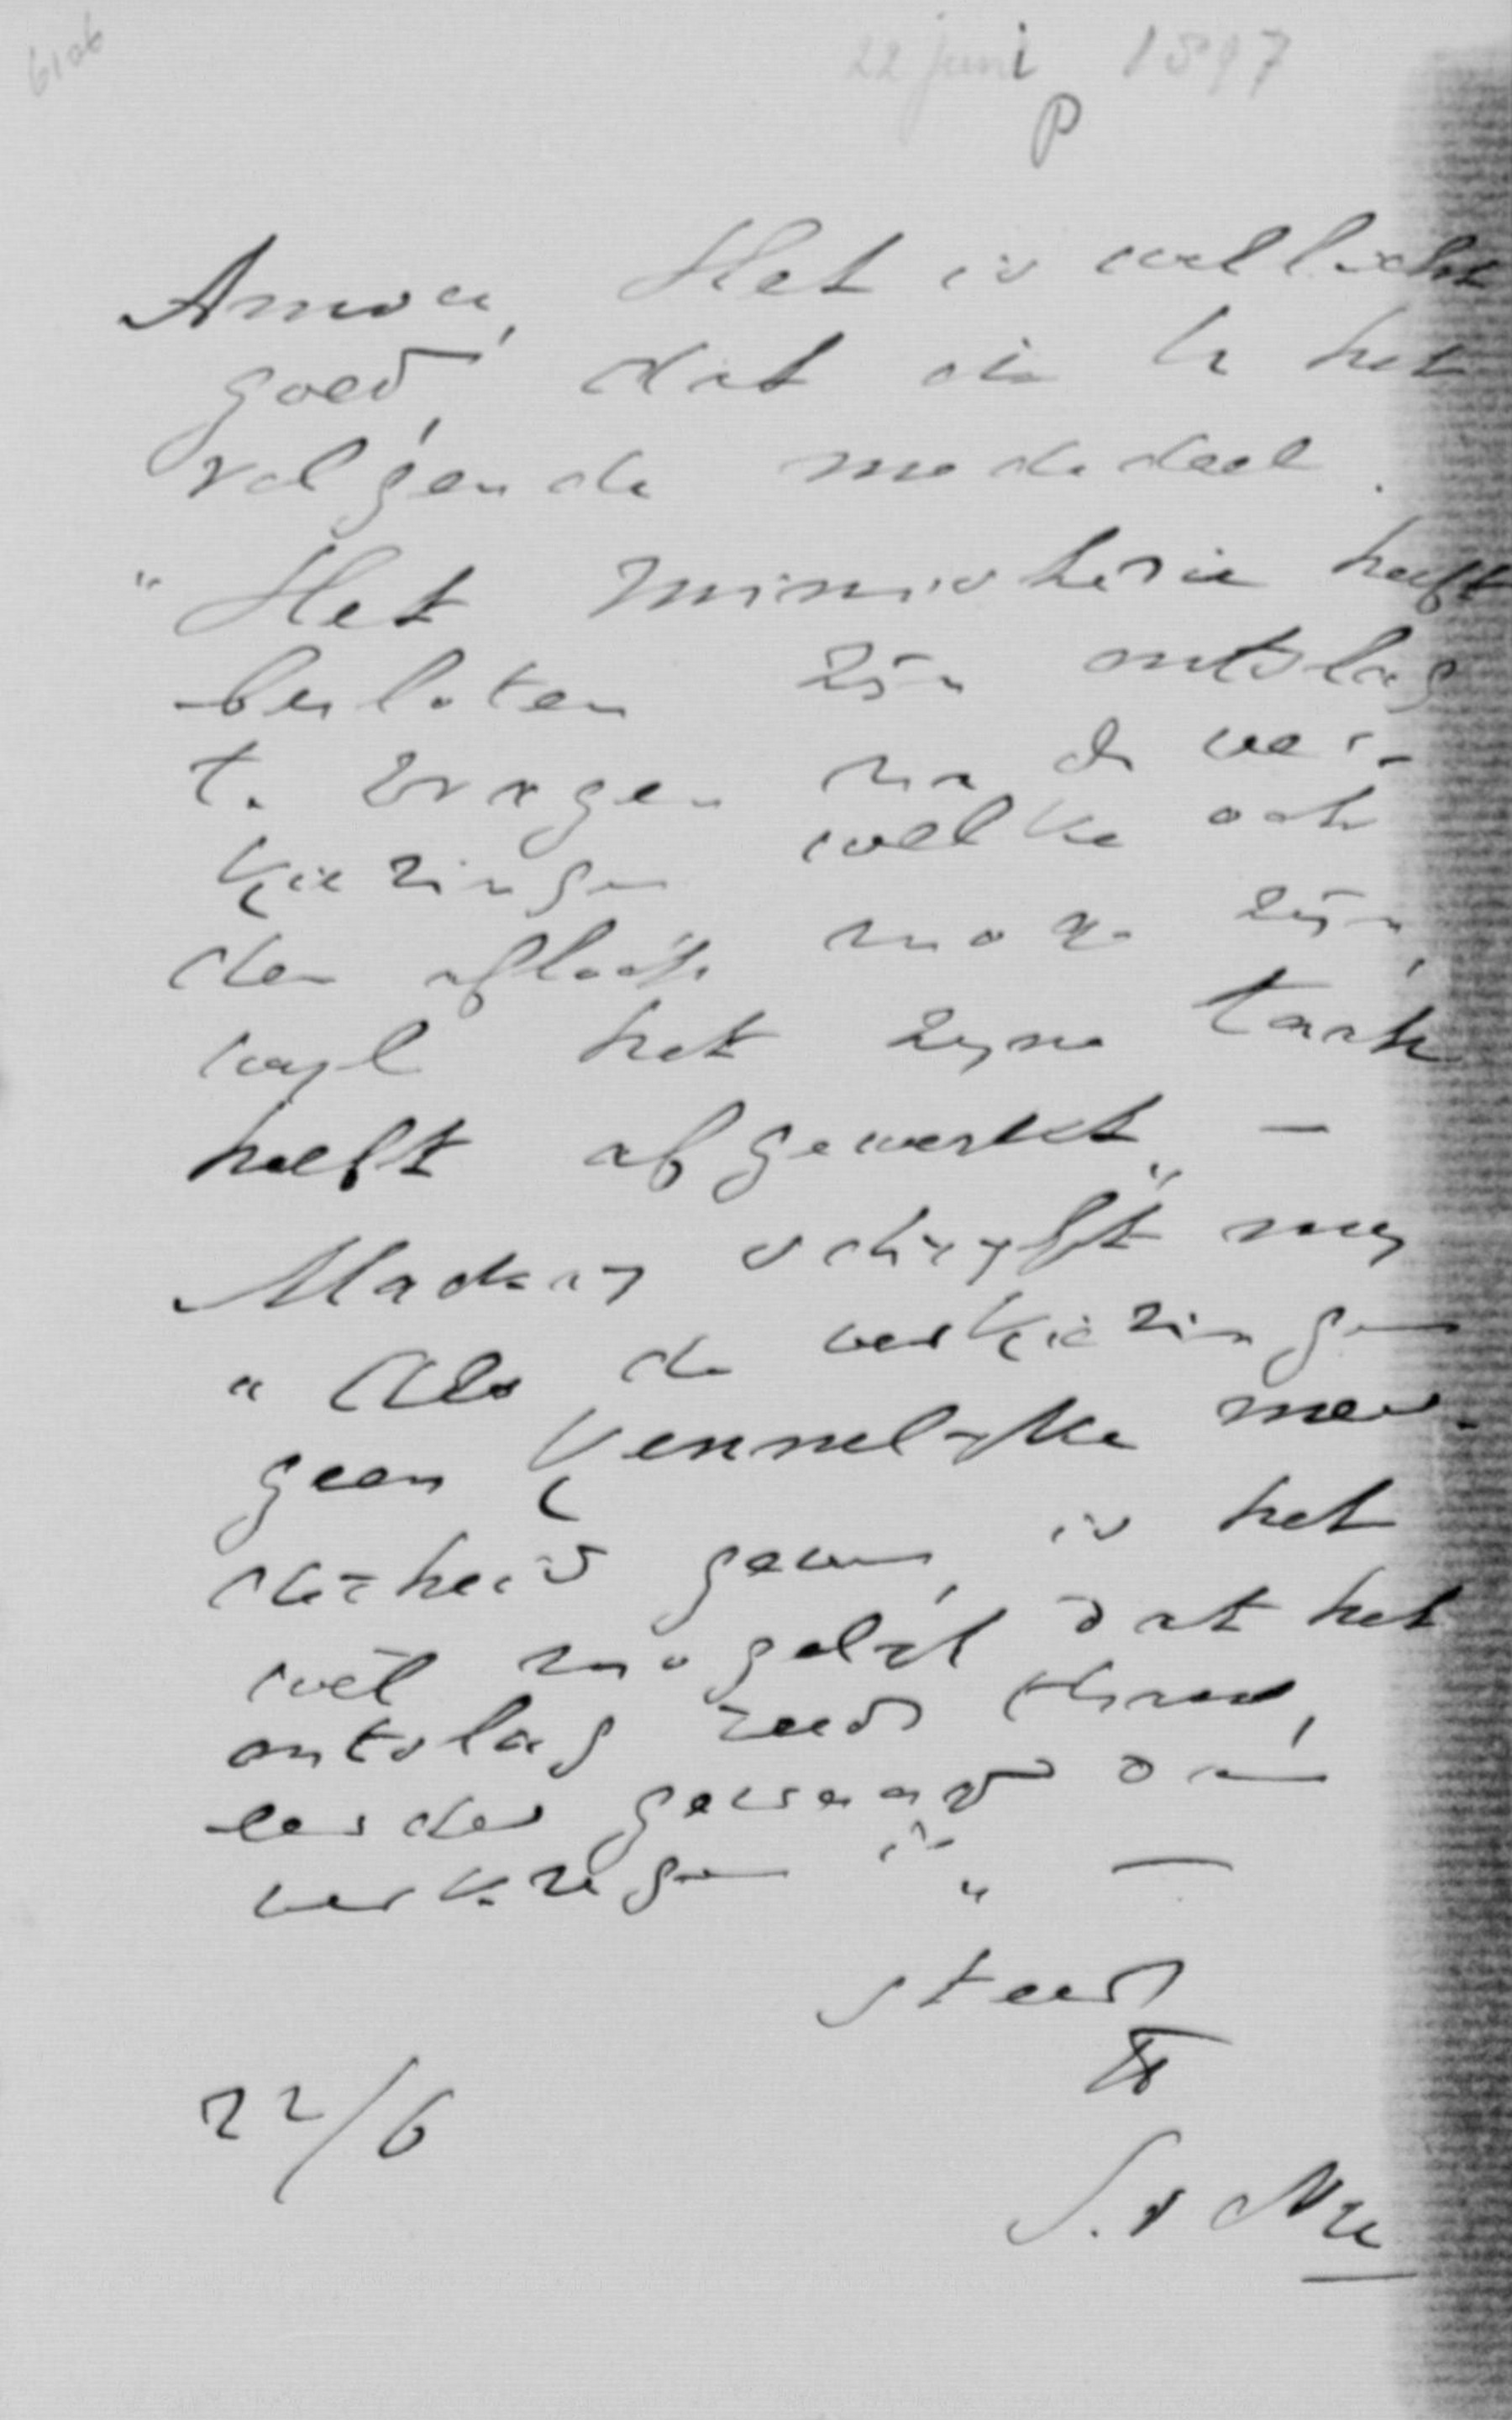 6106
22 juni 1897
P
Amice, Het is wellicht
goed, dat ik U het
volgende mededeel.
"Het Ministerie heeft
besloten zijn ontslag
te vragen na de ver-
kiezingen welke ook
den afloop moge zijn,
wyl het zyne taak
heeft afgewerkt" —
Mackay schryft my
"Als de verkiezingen
geen kennelyke meer-
derheid geven, is het
wel mogelijk dat het
ontslag reeds
eerder gevraagd dan
verkregen is" —
Steeds
tt
22/6
S. v